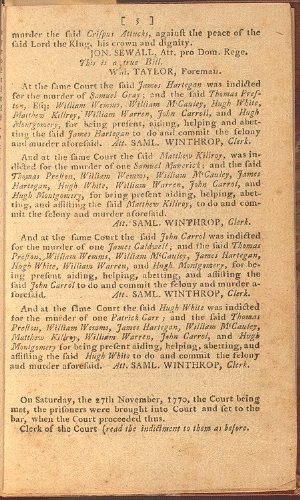 [ 5 ]
murder the said Crispus Attucks, against the peace of the
said Lord the King, his crown and dignity.
JON. SEWALL, Att. pro Dom. Rege.
This is a true Bill.
WM. TAYLOR, Foreman.
At the same Court the said James Hartegan was indicted
for the murder of Samuel Gray; and the said Thomas Pres-
ton, Esq: William Wemms, William M'Cauley, Hugh White,
Matthew Killroy, William Warren, John Carroll, and Hugh
Montgomery, for being present, aiding, helping and abet-
ting the said James Hartegan to do and commit the felony
and murder aforesaid. Att. SAML. WINTHROP, Clerk.
And at the same Court the said Matthew Killroy, was in-
dicted for the murder of one Samuel Maverick; and the said
Thomas Preston, William Wemms, William M'Cauley, James
Hartegan, Hugh White, William Warren, John Carrol, and
Hugh Montgomery, for being present aiding, helping, abet-
ting, and assisting the said Matthew Killroy, to do and com-
mit the felony and murder aforesaid.
Att. SAML. WINTHROP, Clerk.
And at the same Court the said John Carrol was indicted
for the murder of one James Caldwell; and the said Thomas
Preston, William Wemms, William M'Cauley, James Hartegan,
Hugh White, William Warren, and Hugh Montgomery, for be-
ing present aiding, helping, abetting, and assisting the
said John Carrol to do and commit the felony and murder a-
foresaid. Att. SAML. WINTHROP, Clerk.
And at the same Court the said Hugh White was indicted
for the murder of one Patrick Carr; and the said Thomas
Preston, William Wemms, James Hartegan, William M'Cauley,
Matthew Killroy, William Warren, John Carrol, and Hugh
Montgomery for being present aiding, helping, abetting, and
assisting the said Hugh White to do and commit the felony
and murder aforesaid. Att. SAML. WINTHROP, Clerk.
On Saturday, the 27th November, 1770, the Court being
met, the prisoners were brought into Court and set to the
bar, when the Court proceeded thus.
Clerk of the Court (read the indictment to them as before.